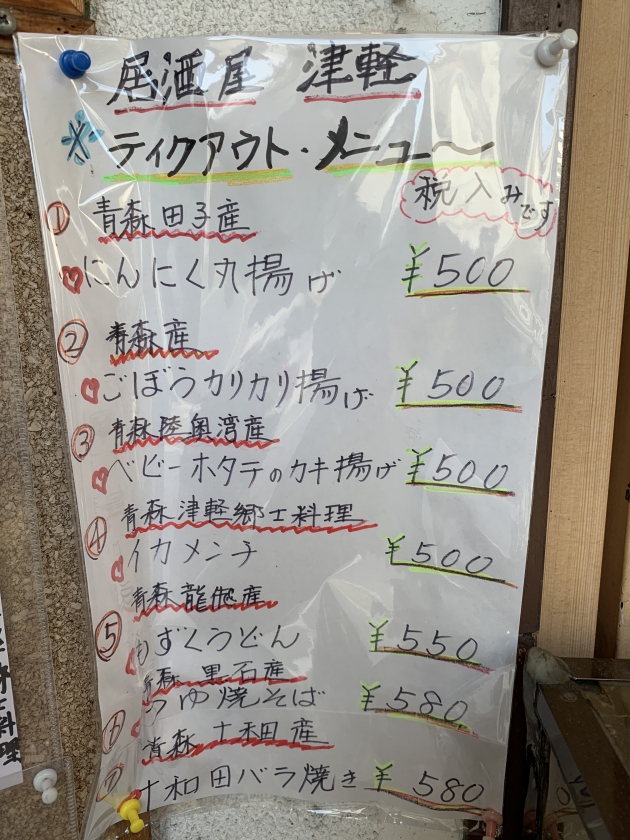 居酒屋 津軽
※ ティクアウト・メニュ～
税込みです
① 青森田子産
にんにく丸揚げ ¥500
② 青森産
ごぼうカリカリ揚げ ¥500
③ 青森陸奥湾産
ベビーホタテのカキ揚げ ¥500
④ 青森津軽郷土料理
イカメンチ ¥500
⑤ 青森龍飛産
もずくうどん ¥550
⑥ 青森 黒石産
つゆ焼そば ¥580
⑦ 青森 十和田産
十和田バラ焼き ¥580
料理